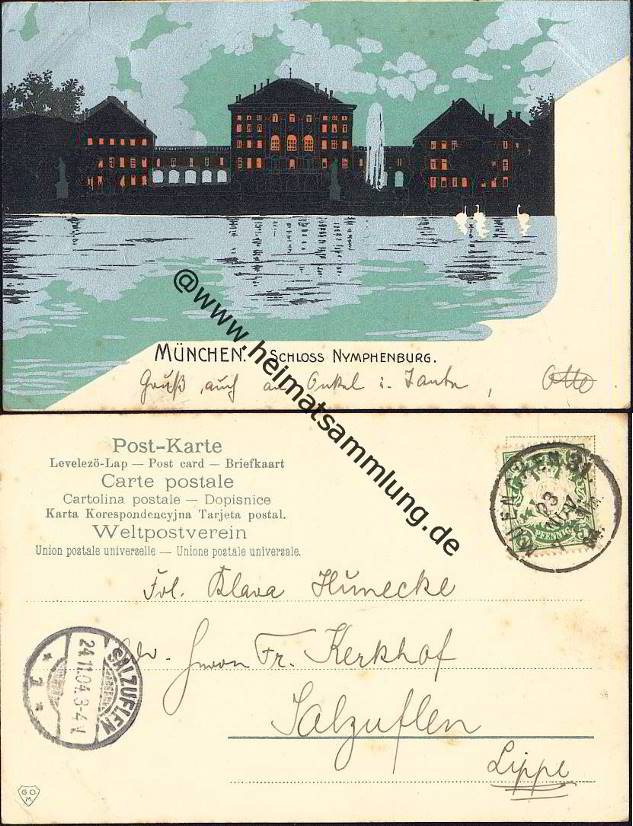 MÜNCHEN. SCHLOSS NYMPHENBURG.
Gruß auch an Onkel i. Tante, Otto
@www.heimatsammlung.de
Post-Karte
Levelezö-Lap — Post card — Briefkaart
Carte postale
Cartolina postale — Dopisnice
Karta Korespondencyjna Tarjeta postal.
Weltpostverein
Union postale universelle — Unione postale universale.
23
NOV
04.
5 PFENNIG 5
Frl. Klara Hünecke
Adr. Herrn Fr. Kerkhof
Salzuflen
Lippe
SALZUFLEN
24.11.04. 3-4
* 2 *